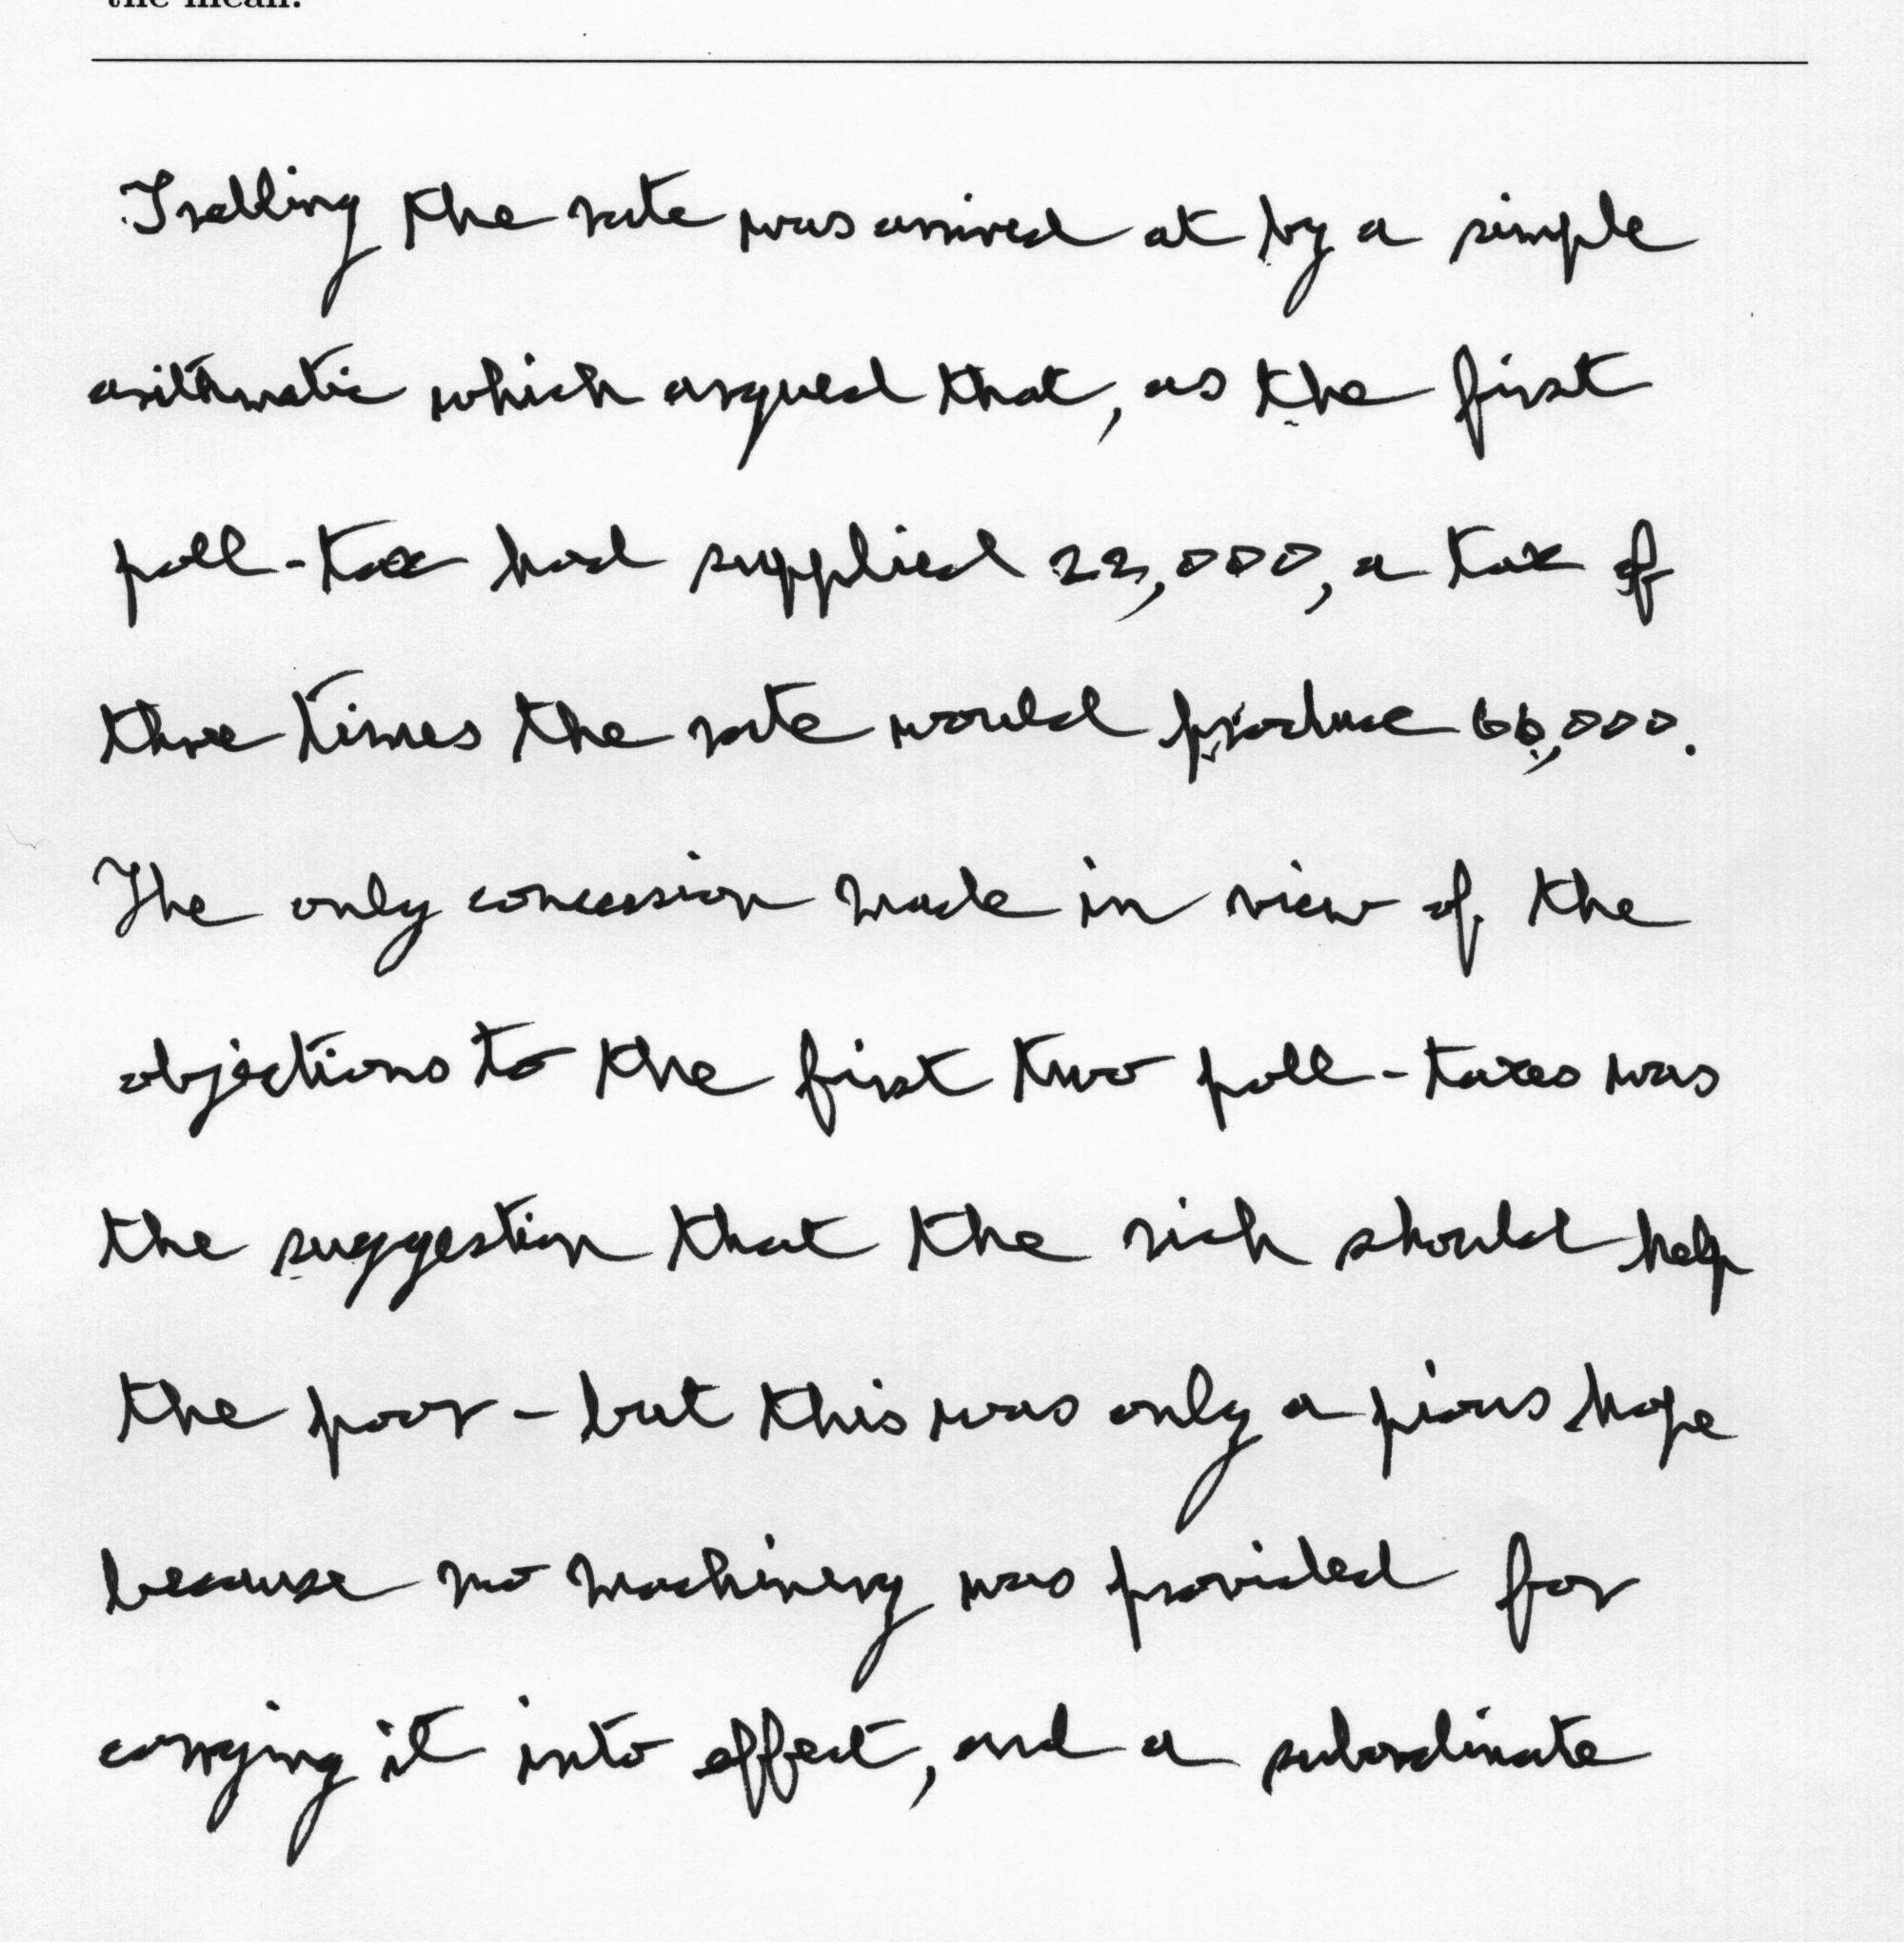 the mean.
Trebling the rate was arrived at by a simple
arithmetic which argued that, as the first
poll-tax had supplied 22,000, a tax of
three times the rate would produce 66,000.
The only concession made in view of the
objections to the first two poll-taxes was
the suggestion that the rich should help
the poor - but this was only a pious hope
because no machinery was provided for
carrying it into effect, and a subordinate